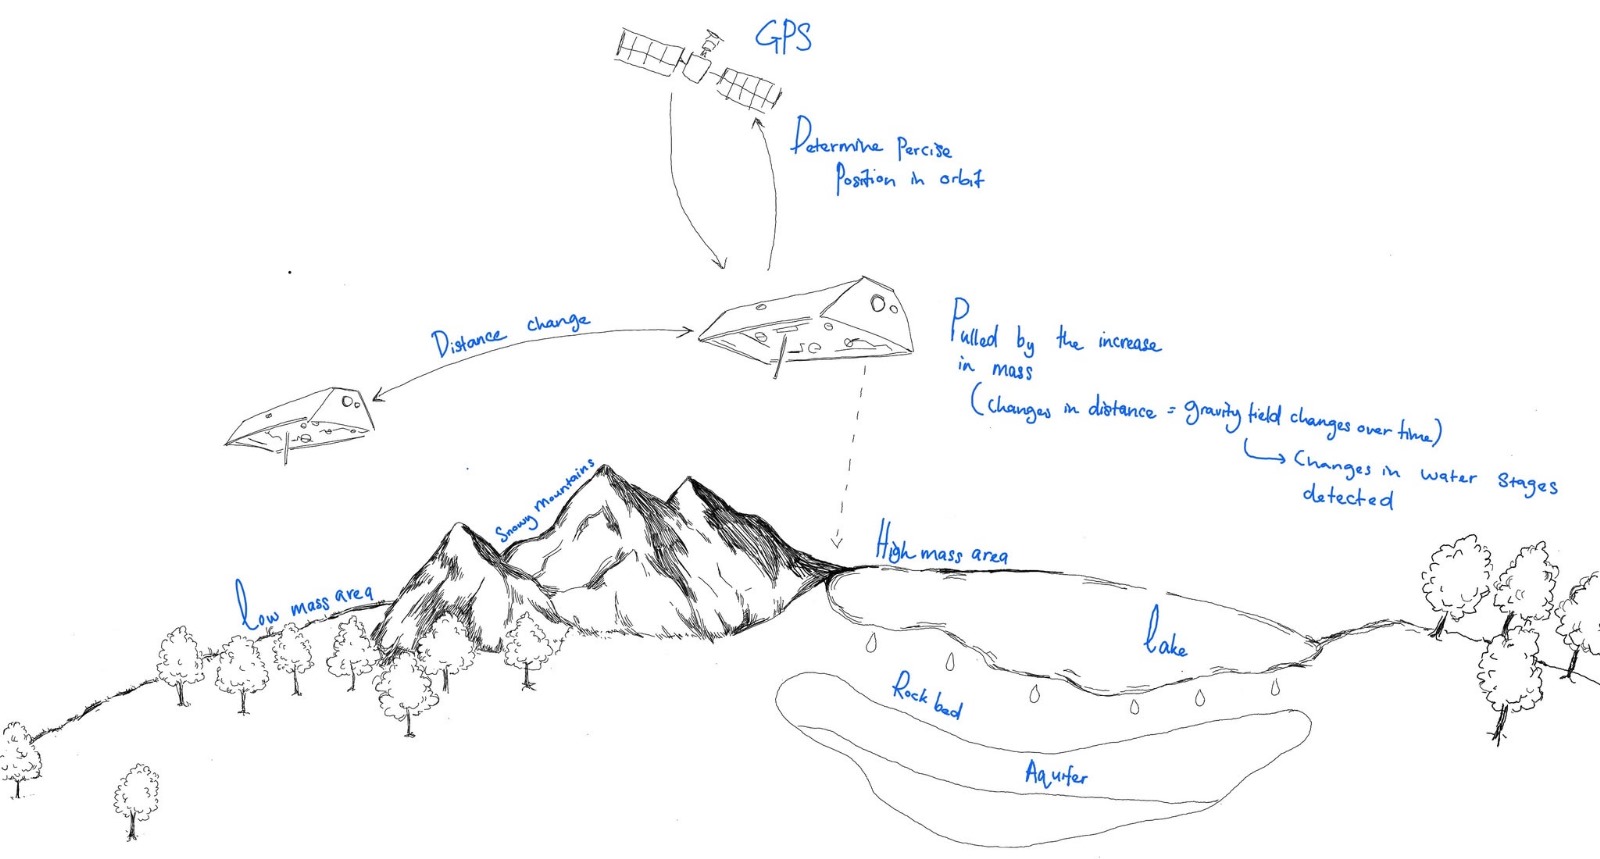 GPS
Determine Percise
Position in orbit
Distance change
Pulled by the increase
in mass
(changes in distance = gravity field changes over time)
Changes in water stages
detected
Snowy Mountains
High mass area
Low mass area
Lake
Rock bed
Aquifer